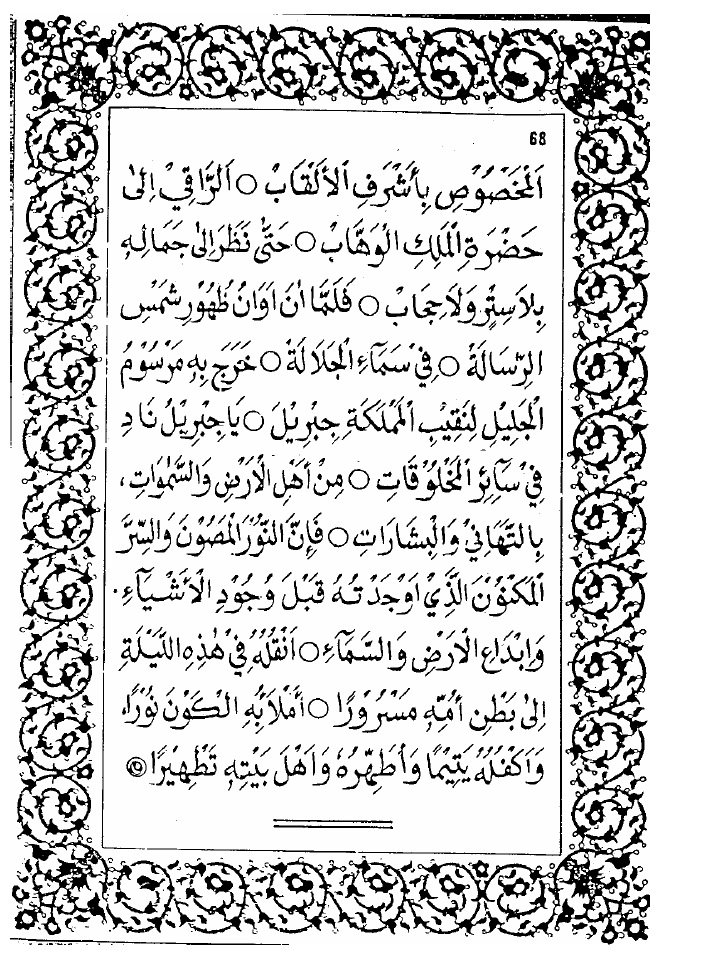 68
اَلْمَخْصُوْصِ بِأَشْرَفِ الْأَلْقَابْ ○ اَلرَّاقِيْ اِلىٰ
حَضْرَةِ الْمَلِكِ الْوَهَّابْ ○ حَتّٰى نَظَرَ اِلىٰ جَمَالِهِ
بِلَاسِتْرٍ وَلَا حِجَابْ ○ فَلَمَّا اٰنَ اَوَانُ ظُهُوْرِ شَمْسِ
الرِّسَالَةْ ○ فِيْ سَمَآءِ الْجَلَالَةْ ○ خَرَجَ بِهِ مَرْسُوْمُ
الْجَلِيْلِ لِنَقِيْبِ الْمَمْلَكَةِ جِبْرِيْلَ ○ يَا جِبْرِيْلُ نَادِ
فِيْ سَآئِرِ الْمَخْلُوْقَاتِ ○ مِنْ أَهْلِ الْاَرْضِ وَالسَّمٰوَاتِ،
بِالتَّهَانِيْ وَالْبِشَارَاتِ ○ فَإِنَّ النُّوْرَ الْمَصُوْنَ وَالسِّرَّ
الْمَكْنُوْنَ الَّذِيْ اَوْجَدْتُهُ قَبْلَ وُجُوْدِ الْأَشْيَآءِ
وَاِبْدَاعِ الْاَرْضِ وَالسَّمَآءِ ○ اَنْقُلُهُ فِيْ هٰذِهِ اللَّيْلَةِ
اِلىٰ بَطْنِ اُمِّهِ مَسْرُوْرًا ○ أَمْلَأُبِهِ الْكَوْنَ نُوْرًا،
وَاَكْفُلُهُ يَتِيْمًا وَأُطَهِّرُهُ وَاَهْلَ بَيْتِهِ تَطْهِيْرًا